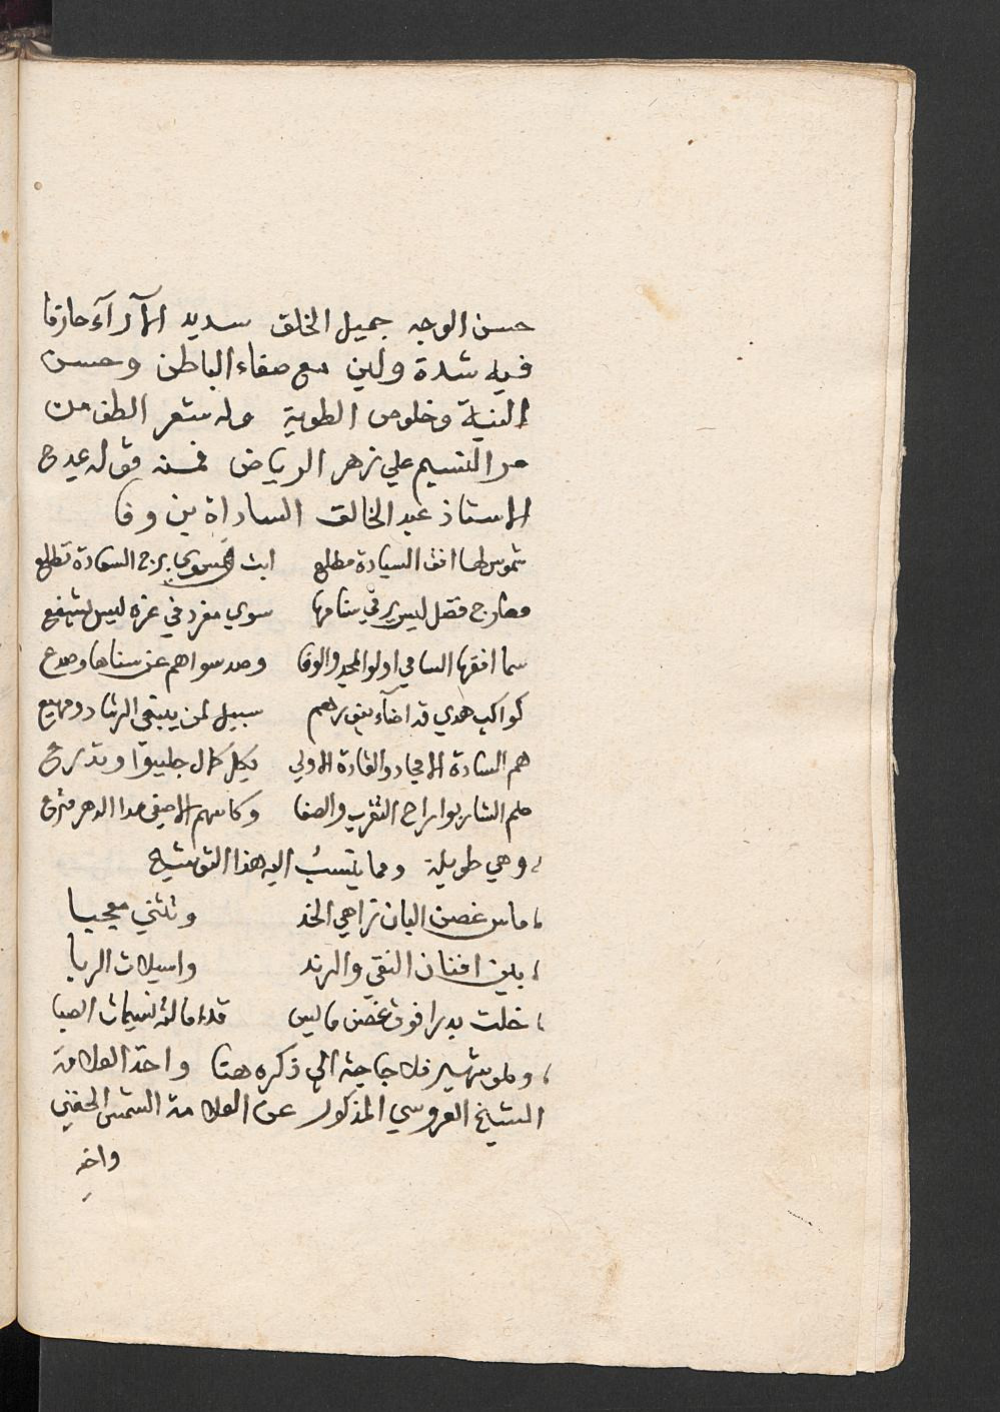 حسن الوجه جميل الخلق سديد الآرآء حازقا
فيه شدة ولين مع صفاء الباطن وحسن
النية وخلوص الطوية وله شعر الطف من
مر النسيم علي زهر الرياض فمنه قوله يمدح
الاستاذ عبد الخالق الساداة بن وفا
شموس لها افق السيادة مطلع ابت سوي برج السعادة تطلع
معارج فضل ليس يرقي سنامها سوي مفرد في عزه ليس يشفع
سما افقها السامي اولوا المجد والوفا وصد سواهم عن سناها وصدع
كواكب هدي قد اضآء بنورهم سبيل لمن يبغي الرشاد ومهيع
هم السادة الامجاد والقادة الاولي بكل كمال جلببوا وتدرع
هم الشاربوا راح التقرب والصفا وكاسهم الاصفي مدا الدهر مترع
وهي طويلة ومما ينسبُ اليه هذا التوشيح
ماس غصن البان زاهي الخد وتثني معجبا
بين افنان النقي والرند واسيلات الربا
خلت بدرا فوق غصن مايس قد امالته نسيمات الصبا
وهو شهير فلا حاجة الي ذكره هنا واخذ العلامة
الشيخ العروسي المذكور عن العلامة الشمس الحفني
واخيه